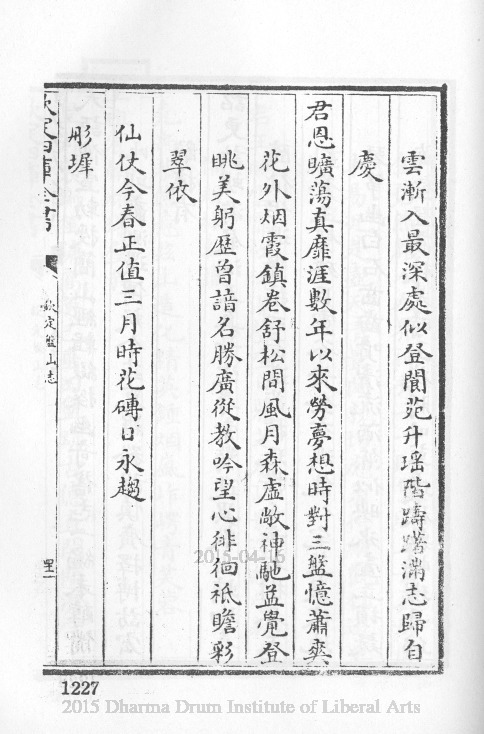 雲漸入最深處似登閬苑升瑤階躊躇滿志歸自
慶
君恩曠蕩真靡涯數年以來勞夢想時對三盤憶蕭爽
花外烟霞鎮卷舒松間風月森虛敞神馳益覺登
眺美躬歷曾諳名勝廣從教吟望心徘徊祇瞻彩
翠依
仙仗今春正值三月時花磚日永趨
彤墀
欽定四庫全書
欽定盤山志
四十一
1227
2015-04-16
2015 Dharma Drum Institute of Liberal Arts